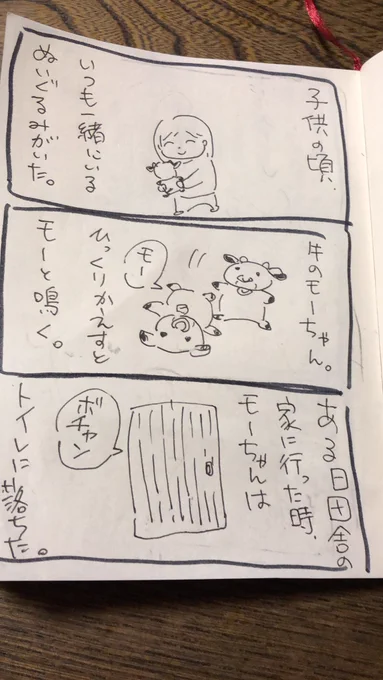 子供の頃、
いつも一緒にいる
ぬいぐるみがいた。
牛のモーちゃん。
モー
ひっくりかえすと
モーと鳴く。
ある日田舎の
家に行った時、
モーちゃんは
ボチャン
トイレに落ちた。